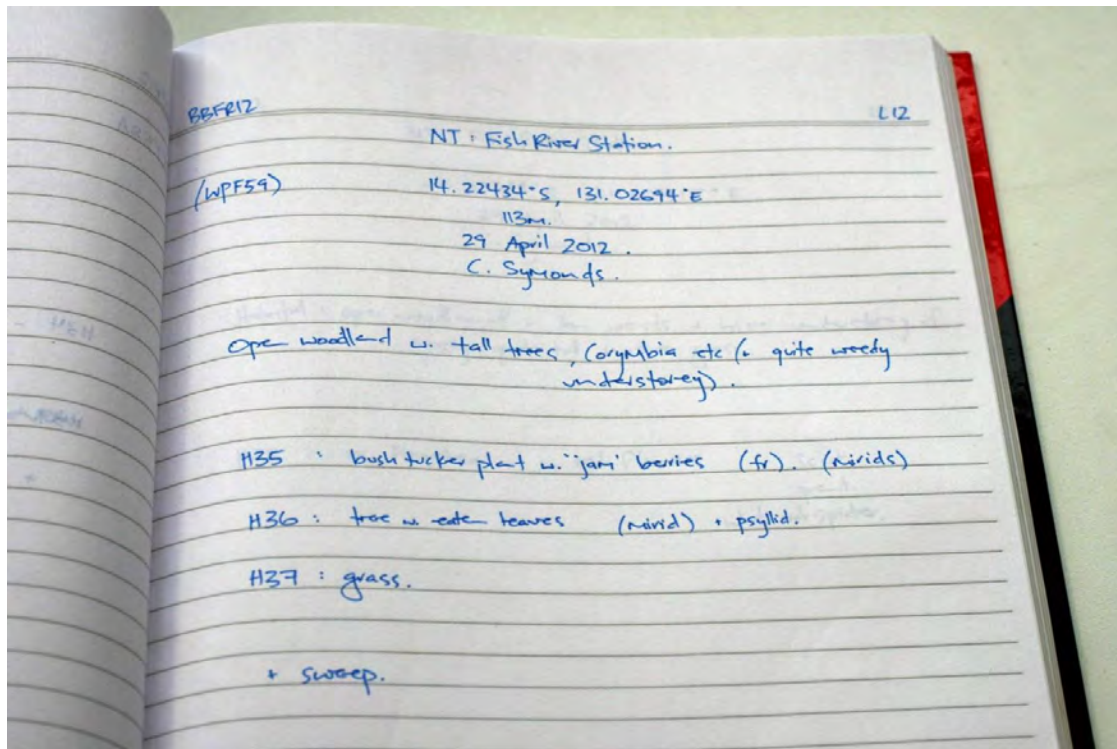 BBFR12 L12
NT : Fish River Station.
(WPF59) 14.22434°S, 131.02694°E
113m.
29 April 2012.
C. Symonds.
Open woodland w. tall trees, Corymbia etc (+ quite weedy
understorey).
H35 : bush tucker plant w. "jam" berries (fr). (mirids)
H36 : tree w. eaten leaves (mirid) + psyllid.
H37 : grass.
+ sweep.